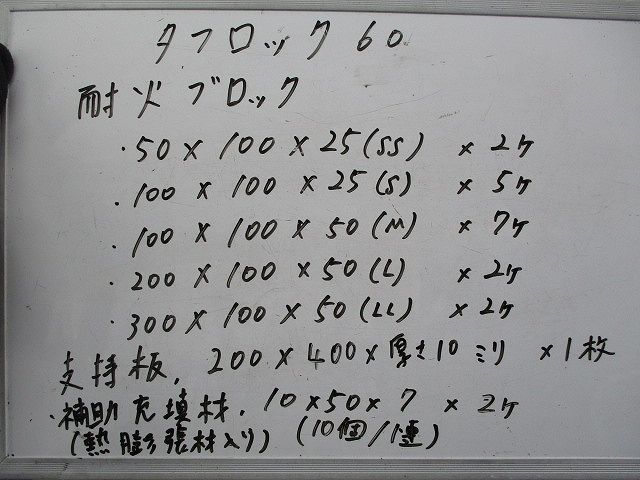 タフロック 60
耐火ブロック
・50 × 100 × 25 (SS) × 2ヶ
・100 × 100 × 25 (S) × 5ヶ
・100 × 100 × 50 (M) × 7ヶ
・200 × 100 × 50 (L) × 2ヶ
・300 × 100 × 50 (LL) × 2ヶ
支持板、200 × 400 × 厚さ10ミリ × 1枚
・補助充填材、10 × 50 × 7 × 2ヶ
(熱膨張材入り) (10個/1連)